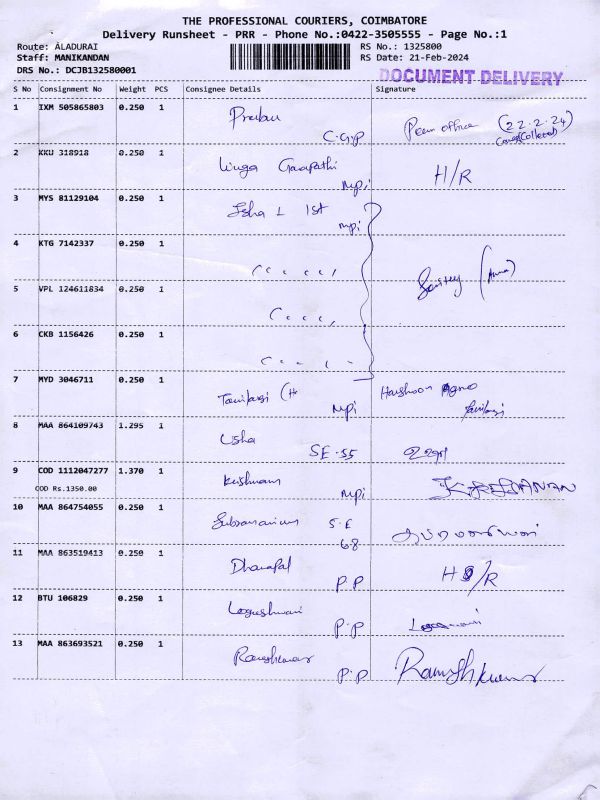 THE PROFESSIONAL COURIERS, COIMBATORE
Delivery Runsheet - PRR - Phone No.:0422-3505555 - Page No.:1
Route: ALADURAI RS No.: 1325800
Staff: MANIKANDAN RS Date: 21-Feb-2024
DRS No.: DCJB132580001
DOCUMENT DELIVERY
S No Consignment No Weight PCS Consignee Details Signature
1 IXM 505865803 0.250 1 C.G.P (22.2.24)
2 KKU 318918 0.250 1 Linga Mpi H/R
3 MYS 81129104 0.250 1 Isha L 1st Mpi
4 KTG 7142337 0.250 1
5 VPL 124611834 0.250 1
6 CKB 1156426 0.250 1
7 MYD 3046711 0.250 1 Mpi
8 MAA 864109743 1.295 1 Usha SE-55
9 COD 1112047277 1.370 1 Mpi
COD Rs.1350.00
10 MAA 864754055 0.250 1 S.E
68
11 MAA 863519413 0.250 1 Dhanapal P.P
12 BTU 106829 0.250 1 P.P
13 MAA 863693521 0.250 1 Rameshkumar P.P Rameshkumar